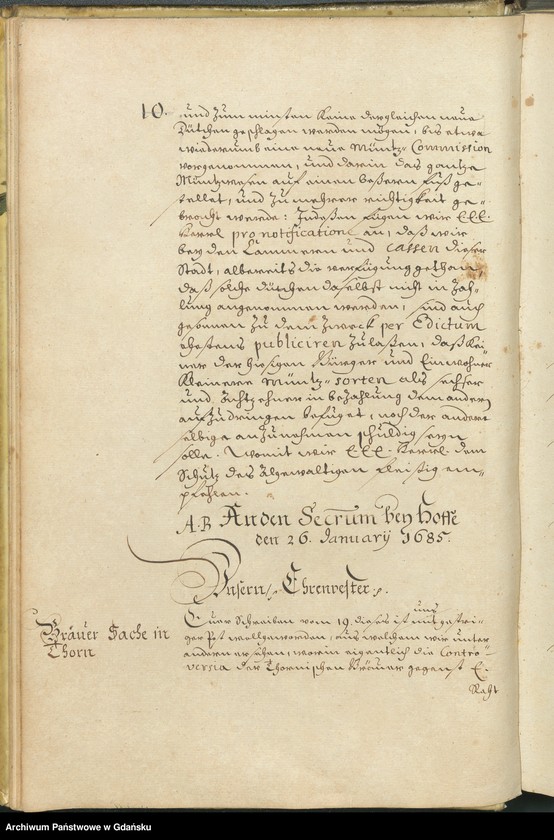 10.
und zum minsten keine dergleichen neue
Dütchen geschlagen werden mögen, bis etwa
wiederumb eine neue Müntz-Commission
vorgenommen, und darin das gantze
Müntzwesen auf einen beßeren fuß ge-
stellet, und zu mehrer richtigkeit ge-
bracht werde: Indeßen fügen wir EEE.
Herrl. pro notificatione an, daß wir
bey den Cammeren und Cassen dieser
Stadt, albereits die verfügung gethan,
daß solche dütchen daselbst nicht in Zah-
lung angenommen werden, sind auch
gesonnen zu dem Zweck per Edictum
ehestens publiciren zulaßen, daß kei-
ner der hiesigen Bürger und Einwohner
kleinere Müntz-sorten als sechser
und Achtzehner in bezahlung dem andern
aufzudringen befüget, noch der andere
selbige anzunehmen schuldig seyn
solle. Womit wir EEE. Herrl. dem
Schutz des Algewaltigen fleißig em-
pfehlen.
A.B An den Secrum bey Hoffe
den 26. January 1685.
Unsern / Ehrenvester.
Bräuer Sache in
Thorn
Euer Schreiben vom 19. dieses ist uns mit gestri-
ger Post woll geworden, aus welchem wir unter
anderen ersehen, worin eigentlich die Contro-
versia der Thornischen Bräuer gegenst E.
Raht
Archiwum Państwowe w Gdańsku